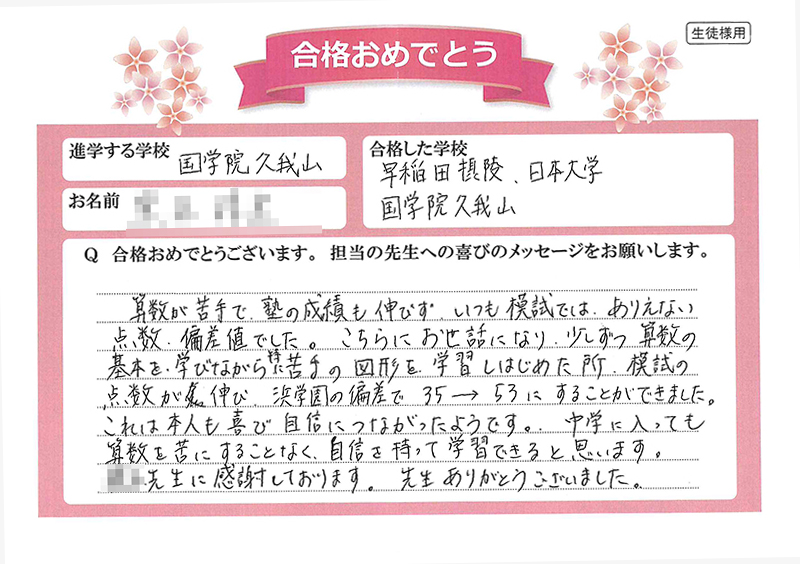 生徒様用
合格おめでとう
進学する学校
国学院久我山
お名前
合格した学校
早稲田摂陵、日本大学
国学院久我山
Q 合格おめでとうございます。担当の先生への喜びのメッセージをお願いします。
算数が苦手で、塾の成績も伸びず、いつも模試では、ありえない
点数、偏差値でした。こちらにお世話になり、少しずつ算数の
基本を、学びながら特に苦手の図形を学習しはじめた所、模試の
点数が伸び、浜学園の偏差で 35 → 53 にすることができました。
これは本人も喜び自信につながったようです。中学に入っても
算数を苦にすることなく、自信を持って学習できると思います。
先生に感謝しております。先生ありがとうございました。